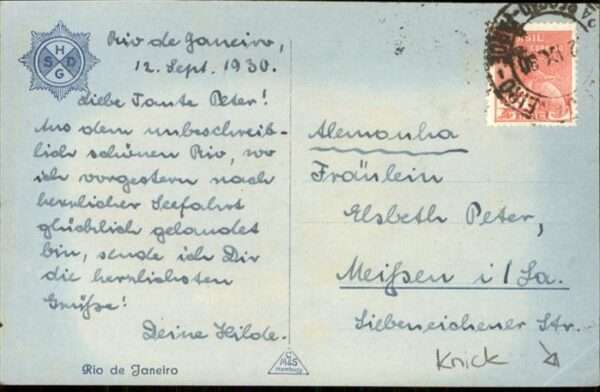 H
S D
G
Rio de Janeiro,
12. Sept. 1930.
Liebe Tante Peter!
Aus dem unbeschreib-
lich schönen Rio, wo
ich vorgestern nach
herrlicher Seefahrt
glücklich gelandet
bin, sende ich Dir
die herzlichsten
Grüße!
Deine Hilde.
Rio de Janeiro
Hamburg
Alemanha
Fräulein
Elsbeth Peter,
Meißen i/Sa.
Siebeneichener Str.
Knick